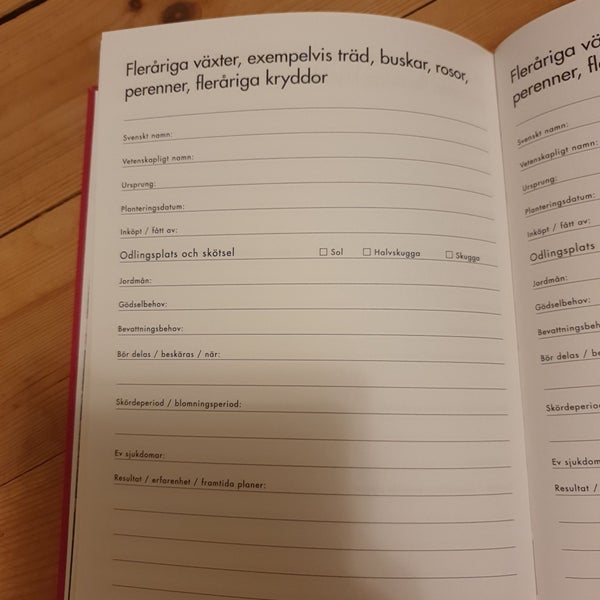 Fleråriga växter, exempelvis träd, buskar, rosor,
perenner, fleråriga kryddor
Svenskt namn:
Vetenskapligt namn:
Ursprung:
Planteringsdatum:
Inköpt / fått av:
Odlingsplats och skötsel Sol Halvskugga Skugga
Jordmån:
Gödselbehov:
Bevattningsbehov:
Bör delas / beskäras / när:
Skördeperiod / blomningsperiod:
Ev sjukdomar:
Resultat / erfarenhet / framtida planer:
Fleråriga vä
perenner, fl
Svenskt namn:
Vetenskapligt namn:
Ursprung:
Planteringsdatum:
Inköpt / fått av:
Odlingsplats o
Jordmån:
Gödselbehov:
Bevattningsbeho
Bör delas / be
Skördeperiod
Ev sjukdoma
Resultat /